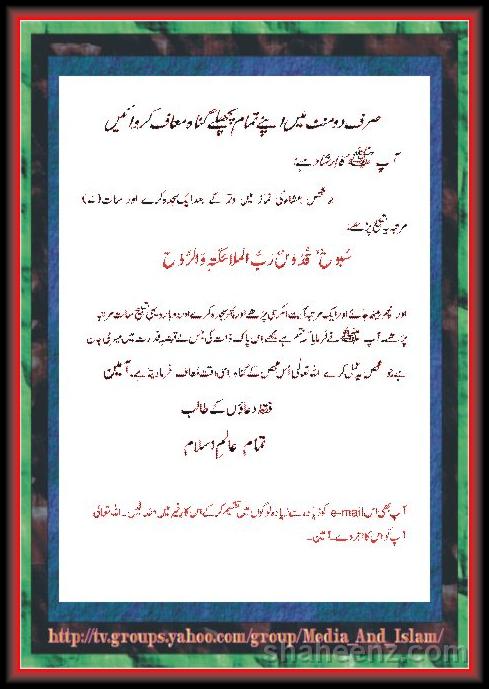 صرف دو منٹ میں اپنے تمام پچھلے گناہ معاف کروائیں
آپ ﷺ کا ارشاد ہے:
جو شخص عشاء کی نماز میں وتر کے بعد ایک سجدہ کرے اور سات (۷)
مرتبہ یہ تسبیح پڑھے:
سُبوحٌ قُدُّوسٌ رَبُّ الملائکتہِ وَالرُّوح
اور پھر بیٹھ جائے اور ایک مرتبہ آیت الکرسی پڑھے اور پھر سجدہ کرے اور دوبارہ یہی تسبیح سات مرتبہ
پڑھے۔ آپ ﷺ نے فرمایا کہ قسم ہے مجھے اس پاک ذات کی جس کے قبضہ قدرت میں میری جان
ہے جو شخص یہ عمل کرے اللہ تعالٰی اُس شخص کے گناہ اسی وقت معاف فرما دیتا ہے۔ آمین
فقط دعاؤں کے طالب
تمام عالمِ اسلام
آپ بھی اس e-mail کو زیادہ سے زیادہ لوگوں میں تقسیم کر کے اس کارِ خیر میں حصہ لیں۔ اللہ تعالٰی
آپ کو اس کا اجر دے۔ آمین۔
http://tv.groups.yahoo.com/group/Media_And_Islam/
shaheenz.com